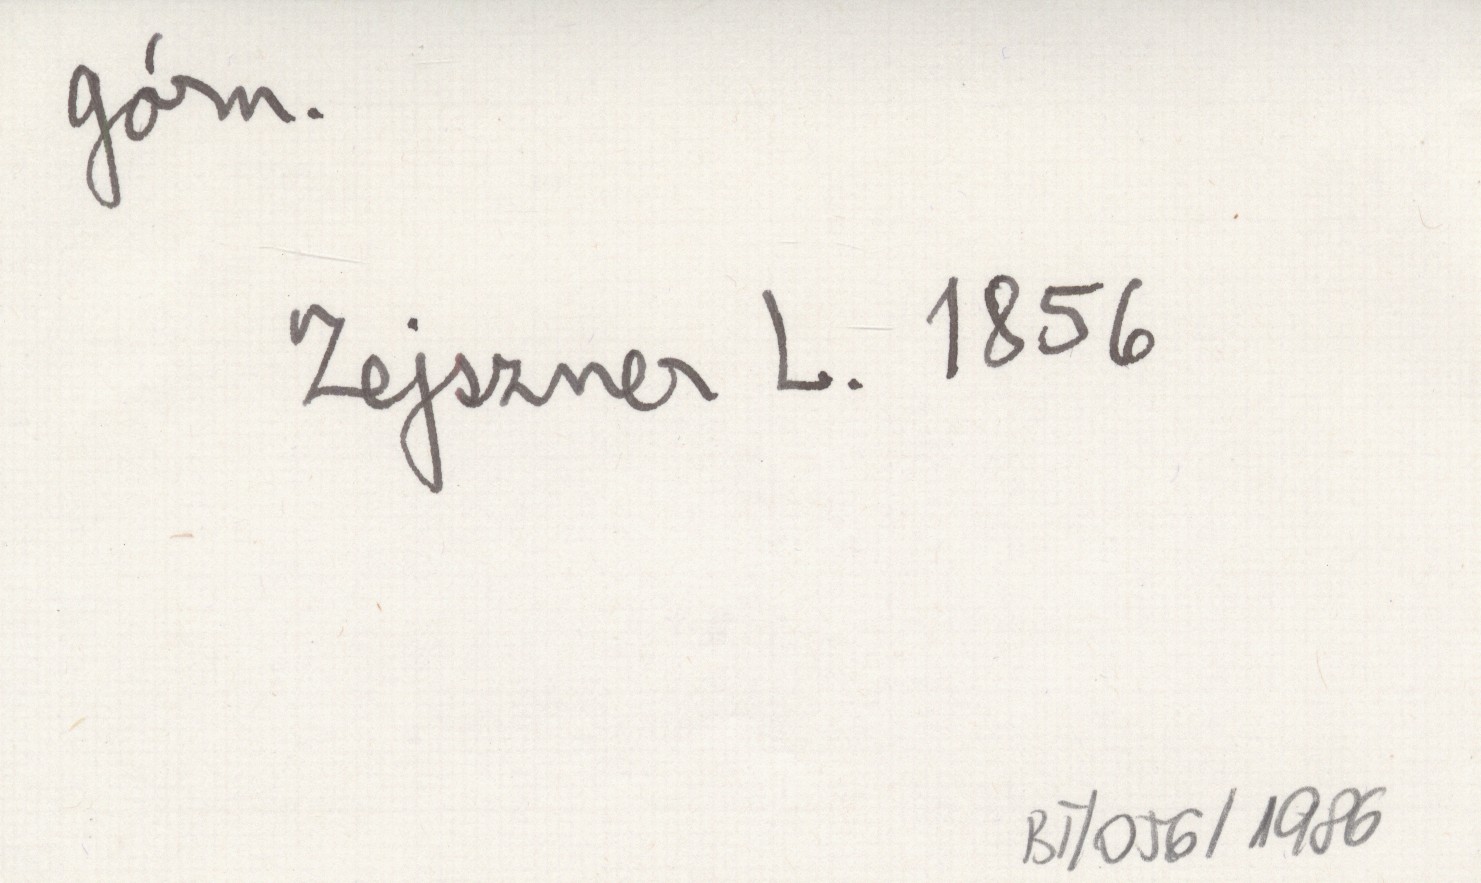 górn.
Zejszner L. 1856
BI/056/1986